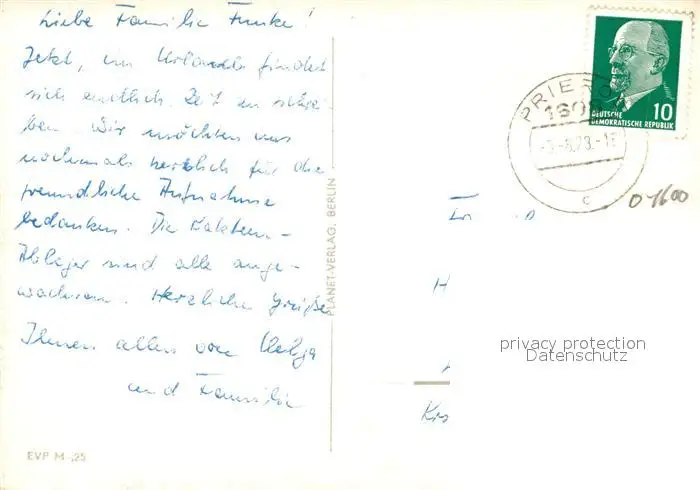 Liebe Familie Funke!
Jetzt, im Urlaub findet
sich endlich Zeit zu schrei-
ben. Wir möchten uns
nochmals herzlich für die
freundliche Aufnahme
bedanken. Die Kakteen-
Ableger sind alle ange-
wachsen. Herzliche Grüße
Ihnen allen von Helga
und Familie
EVP M -,25
PLANET-VERLAG, BERLIN
PRIEROS
1608
-8.73.-1
c
10
DEUTSCHE
DEMOKRATISCHE REPUBLIK
0-1600
H
privacy protection
Datenschutz